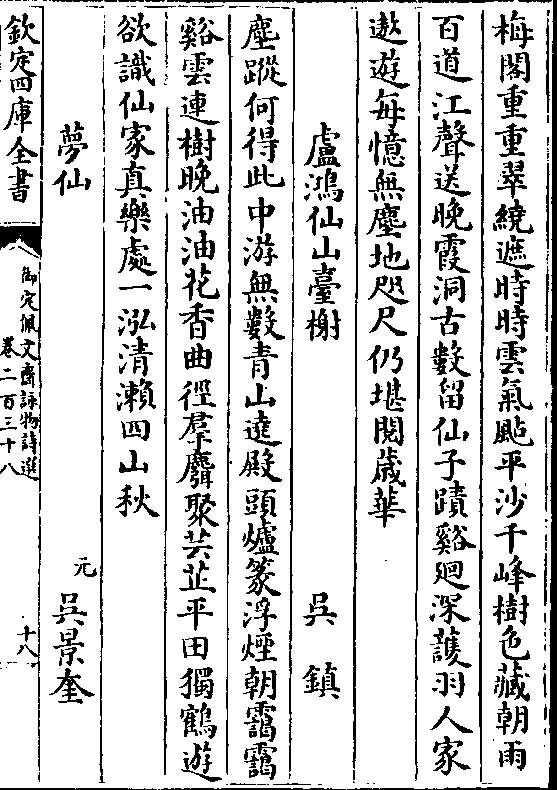 梅閣重重翠繞遮時時雲氣颭平沙千峰樹色藏朝雨
百道江聲送晚霞洞古數留仙子蹟谿廻深護羽人家
遨遊每憶無塵地咫尺仍堪閱歲華
盧鴻仙山臺榭 吳鎮
塵蹤何得此中游無數青山遶殿頭爐篆浮煙朝靄靄
谿雲連樹晚油油花香曲徑羣麛聚芸芷平田獨鶴遊
欲識仙家真樂處一泓清瀨四山秋
夢仙 元吳景奎
欽定四庫全書
御定佩文齋詠物詩選
卷二百三十八
十八